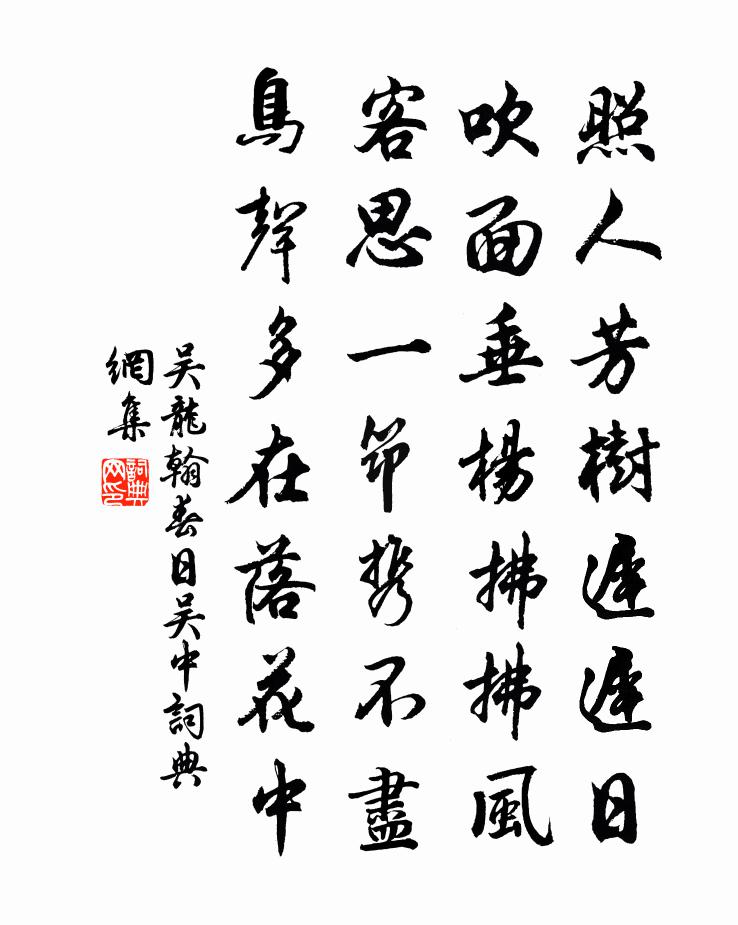 照人芳樹遲遲日
吹面垂楊拂拂風
客思一筇携不盡
鳥聲多在落花中
吳龍翰春日吳中詞典
網集
詞典網印